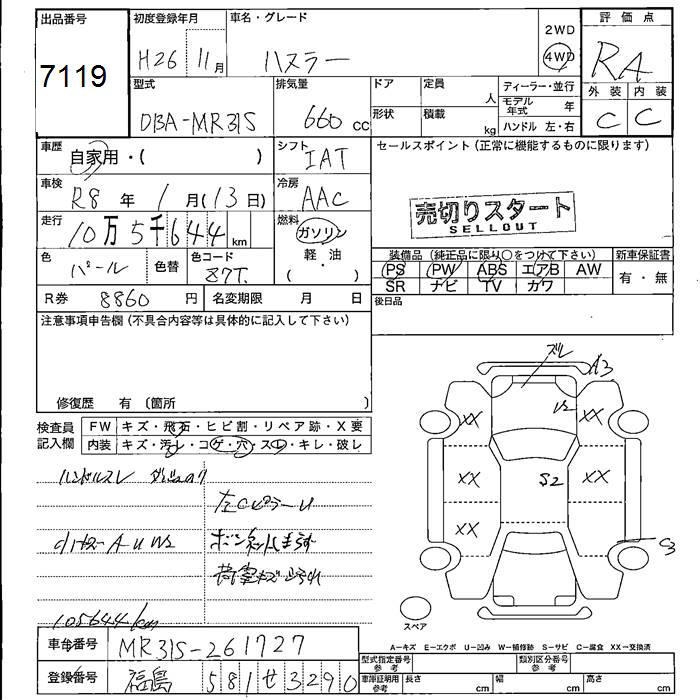 出品番号
7119
初度登録年月
H26 11月
車名・グレード
ハスラー
2WD
4WD
評価点
RA
外装 内装
C C
型式
DBA-MR31S
排気量
660 cc
ドア
形状
定員 人
積載 kg
ディーラー・並行
モデル年式 年
ハンドル 左・右
車歴
自家用・( )
シフト
IAT
セールスポイント (正常に機能するものに限ります)
売切りスタート
SELLOUT
車検
R8年 1月(13日)
冷房
AAC
走行
10万5千644km
燃料
ガソリン
軽・油
( ・ )
色
パール
色替
色コード
87T.
装備品 (純正品に限り○をつけて下さい)
新車保証書
PS PW ABS エアB AW
SR ナビ TV カワ
有・無
R券 8860円
名変期限 月 日
後日品
注意事項申告欄 (不具合内容等は具体的に記入して下さい)
修復歴 有 (箇所 )
検査員記入欄
FW キズ・飛石・ヒビ割・リペア跡・X要
内装 キズ・汚レ・コゲ・穴・スレ・キレ・破レ
ハンドルスレ
左Cピラーu
A U W2
105644km
ズレ
A3
U2
XX XX
XX S2 XX
XX
C3
スペア
A=キズ E=エクボ U=凹み W=補修跡 S=サビ C=腐食 XX=交換済
車台番号
MR31S-261727
登録番号
福島 581せ3290
型式指定番号 参考
類別区分番号 参考
車庫証明用 参考
長さ cm
幅 cm
高さ cm